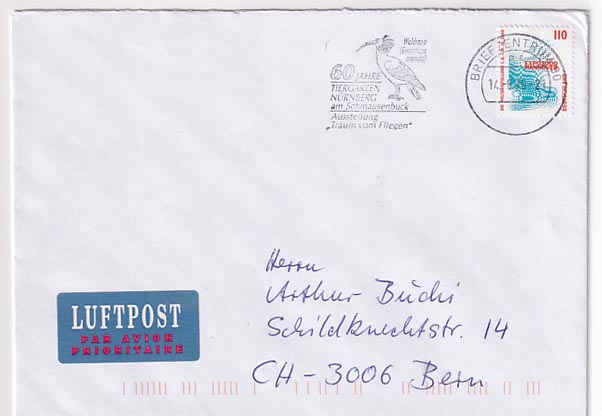 Waldrapp
60 JAHRE
TIERGARTEN
NÜRNBERG
am Schmausenbuck
Ausstellung
„Traum vom Fliegen"
BRIEFZENTRUM
110
DEUTSCHLAND
LUFTPOST
PAR AVION
PRIORITAIRE
Herrn
Arthur Büchi
Schildknechtstr. 14
CH-3006 Bern